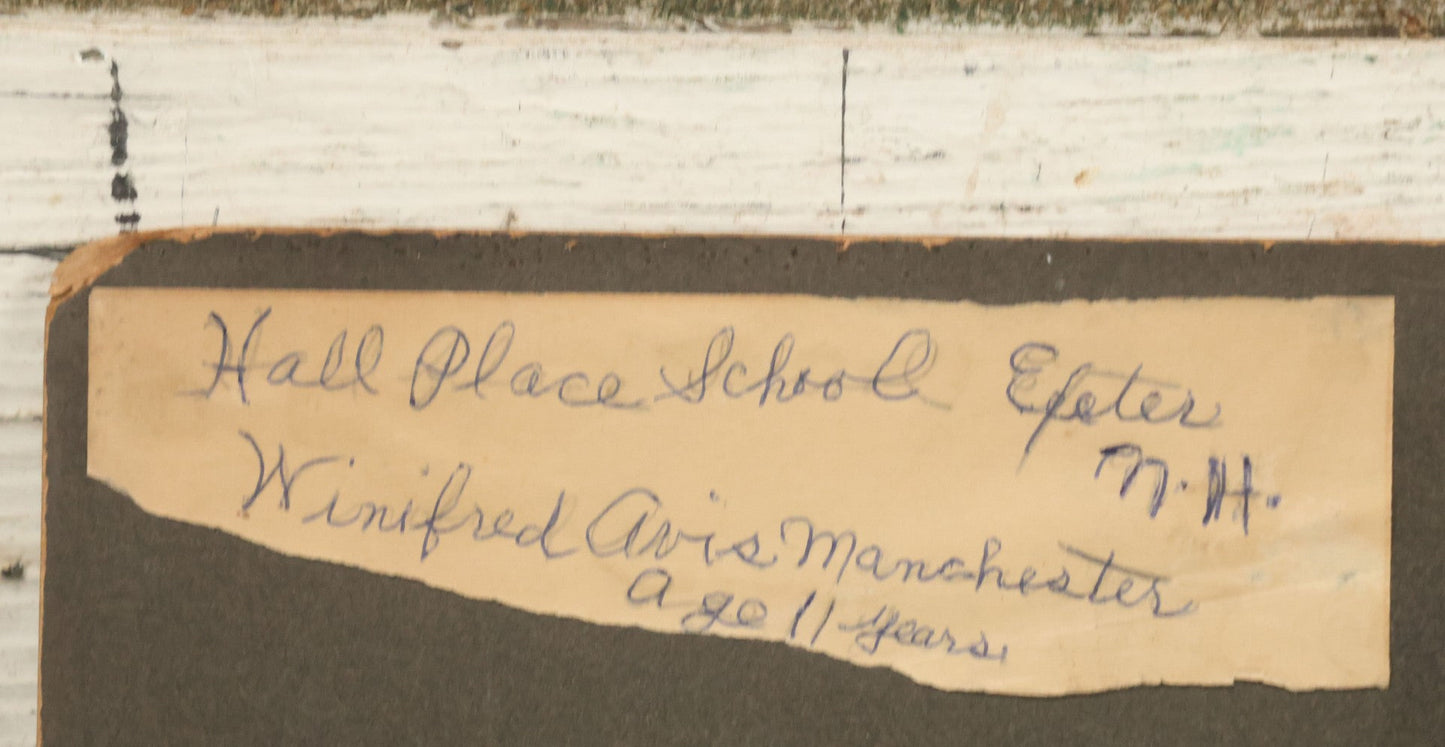 Hall Place School Exeter
N.H.
Winifred Avis Manchester
Age 11 years